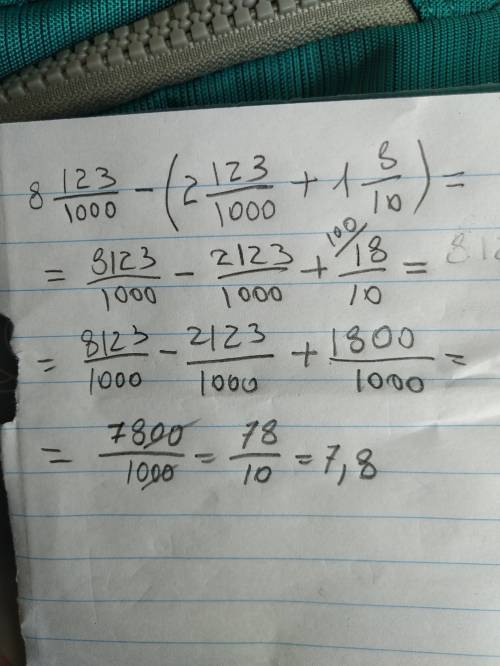 8 123/1000 - (2 123/1000 + 1 8/10) =
= 8123/1000 - 2123/1000 + 100/ 18/10 =
= 8123/1000 - 2123/1000 + 1800/1000 =
= 7800/1000 = 78/10 = 7,8